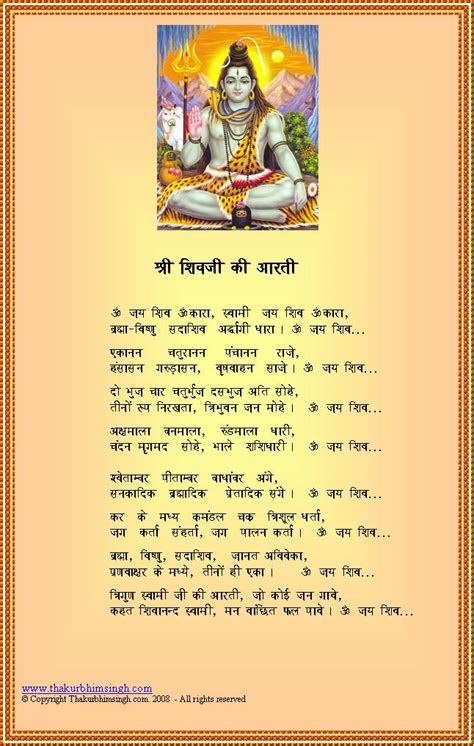 श्री शिवजी की आरती
ॐ जय शिव ॐकारा, स्वामी जय शिव ॐकारा,
ब्रह्मा-विष्णु सदाशिव अर्द्धांगी धारा। ॐ जय शिव...
एकानन चतुरानन पंचानन राजे,
हंसासन गरुड़ासन, वृषवाहन साजे। ॐ जय शिव...
दो भुज चार चतुर्भुज दसभुज अति सोहे,
तीनों रूप निरखता, त्रिभुवन जन मोहे। ॐ जय शिव...
अक्षमाला वनमाला, रुंडमाला धारी,
चंदन मृगमद सोहे, भाले शशिधारी। ॐ जय शिव...
श्वेताम्बर पीताम्बर वाघांबर अंगे,
सनकादिक ब्रह्मादिक प्रेतादिक संगे। ॐ जय शिव...
कर के मध्य कमंडल चक्र त्रिशूल धर्ता,
जग कर्ता संहर्ता, जग पालन कर्ता। ॐ जय शिव...
ब्रह्मा, विष्णु, सदाशिव, जानत अविवेका,
प्रणवाक्षर के मध्ये, तीनों ही एका। ॐ जय शिव...
त्रिगुण स्वामी जी की आरती, जो कोई जन गावे,
कहत शिवानन्द स्वामी, मन वांछित फल पावे। ॐ जय शिव...
www.thakurbhimsingh.com
© Copyright Thakurbhimsingh.com. 2008 - All rights reserved